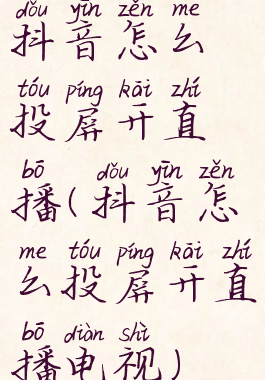 dǒu yīn zěn me
抖音怎么
tóu píng kāi zhí
投屏开直
bō dǒu yīn zěn
播(抖音怎
me tóu píng kāi zhí
么投屏开直
bō diàn shì
播电视)